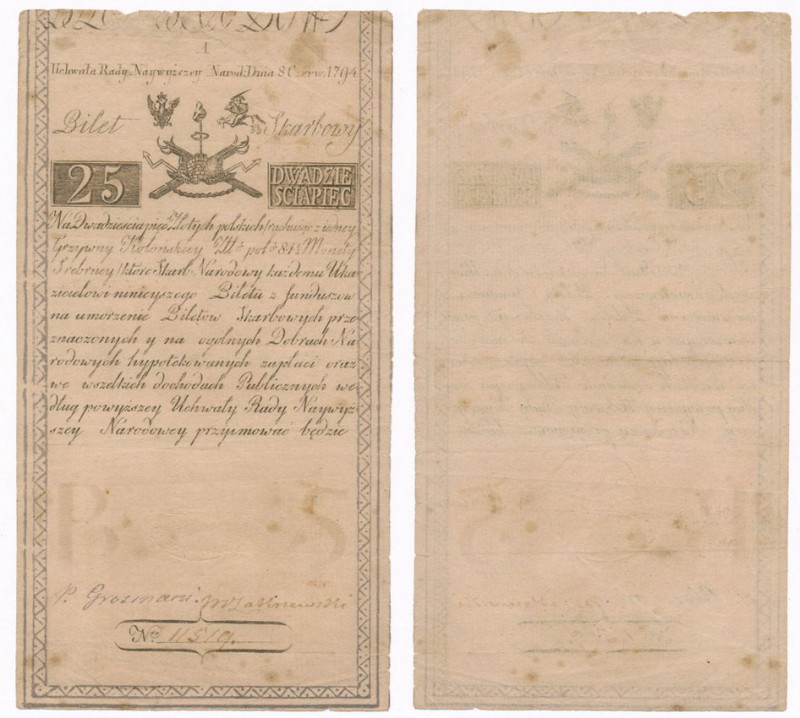 A
Uchwała Rady Naywyższey Narod: Dnia 8 Czerw: 1794
Bilet Skarbowy
25
DWADZIE
ŚCIAPIĘĆ
Na Dwadzieściapięć Złotych polskich rachuiąc z iedney
Grzywny Kolońskiey Złł: pol: 84½ Monety
Srebrney które Skarb Narodowy każdemu Uka
zicielowi ninieyszego Biletu z funduszow
na umorzenie Biletow Skarbowych prze
znaczonych y na ogólnych Dobrach Na
rodowych hypotekowanych zapłaci oraz
we wszelkich dochodach Publicznych we
dług powyższey Uchwały Rady Naywyż
szey Narodowey przyimować będzie
P. Grozmani. M Zakrzewski
No 11519.